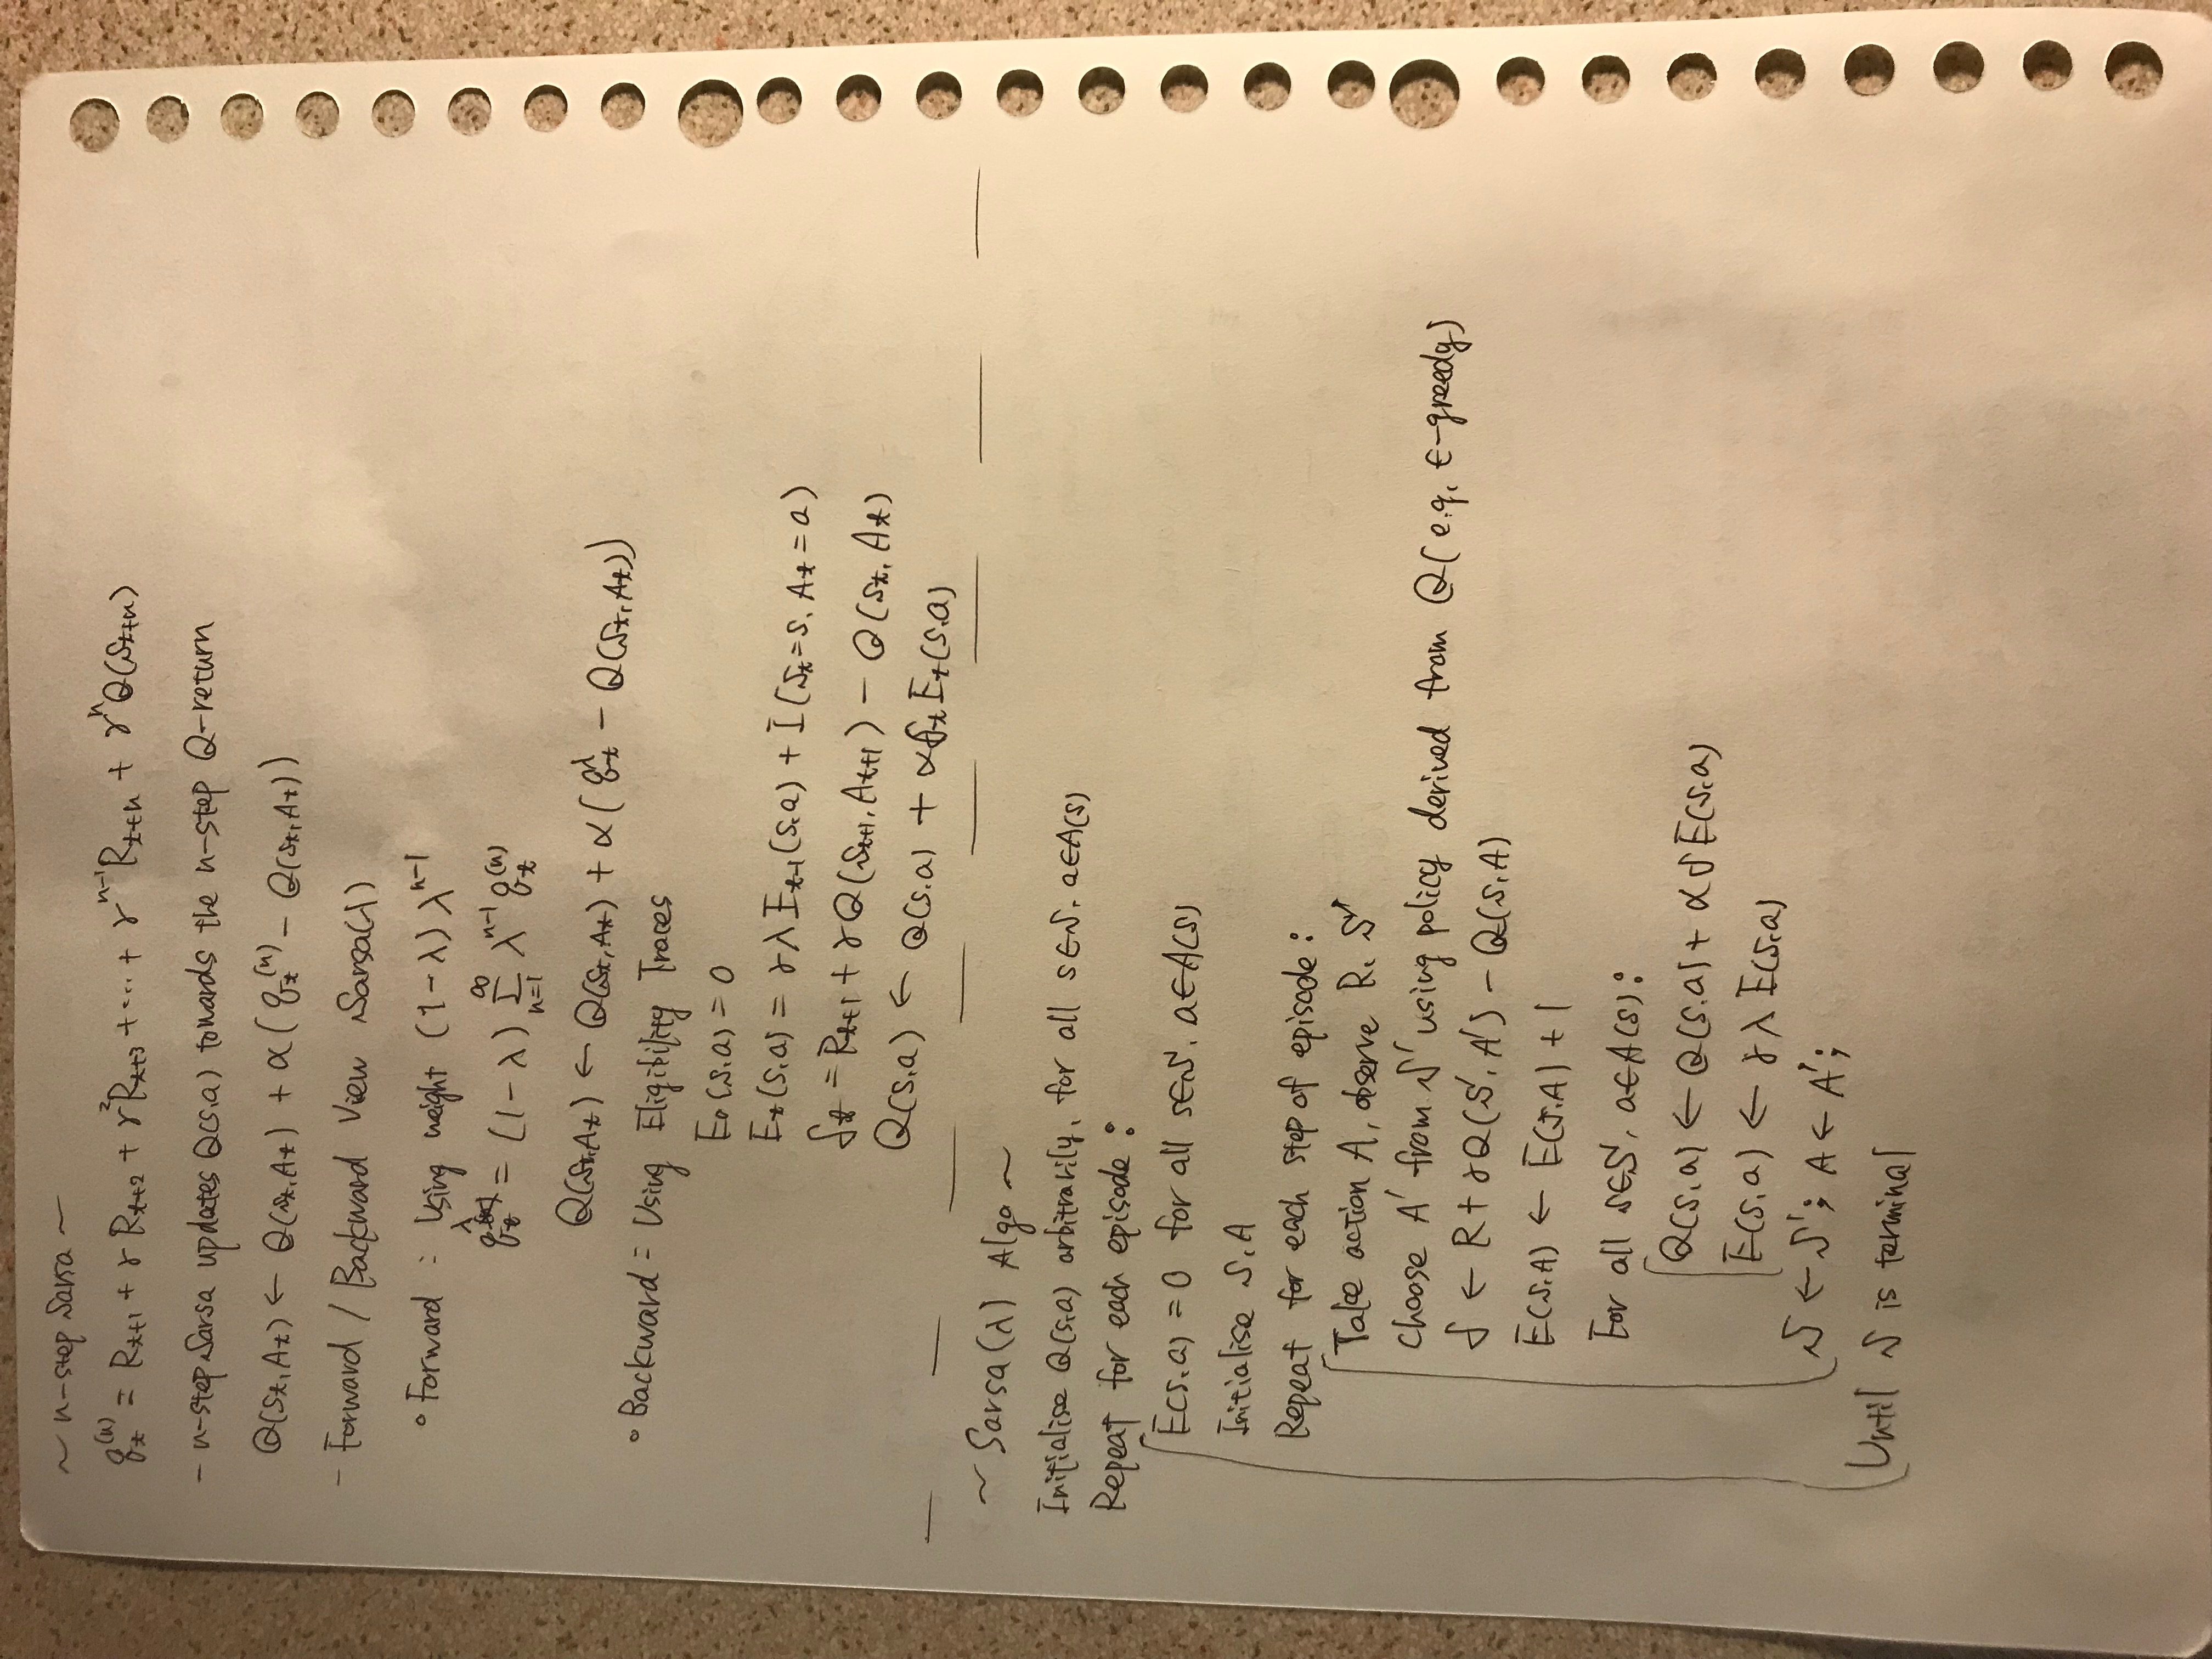 ~ n-step Sarsa ~
q_t^(n) = R_{t+1} + γ R_{t+2} + γ^2 R_{t+3} + ... + γ^{n-1} R_{t+n} + γ^n Q(S_{t+n})
- n-step Sarsa updates Q(s,a) towards the n-step Q-return
Q(S_t, A_t) ← Q(S_t, A_t) + α ( q_t^(n) - Q(S_t, A_t))
- Forward / Backward View Sarsa(λ)
∘ Forward : Using weight (1-λ) λ^{n-1}
q_t^λ = (1-λ) Σ_{n=1}^∞ λ^{n-1} q_t^(n)
Q(S_t, A_t) ← Q(S_t, A_t) + α ( q_t^λ - Q(S_t, A_t))
∘ Backward = Using Eligibility Traces
E_0(s,a) = 0
E_t(s,a) = γλ E_{t-1}(s,a) + I (S_t = s, A_t = a)
δ_t = R_{t+1} + γ Q(S_{t+1}, A_{t+1}) - Q(S_t, A_t)
Q(s,a) ← Q(s,a) + α δ_t E_t(s,a)
~ Sarsa(λ) Algo ~
Initialise Q(s,a) arbitrarily, for all s∈S, a∈A(s)
Repeat for each episode :
E(s,a) = 0 for all s∈S, a∈A(s)
Initialise S, A
Repeat for each step of episode :
Take action A, observe R, S'
Choose A' from S' using policy derived from Q ( e.g, ε-greedy)
δ ← R + γ Q(S', A') - Q(S, A)
E(S,A) ← E(S,A) + 1
For all s∈S, a∈A(s) :
Q(s,a) ← Q(s,a) + α δ E(s,a)
E(s,a) ← γ λ E(s,a)
S ← S' ; A ← A' ;
Until S is terminal